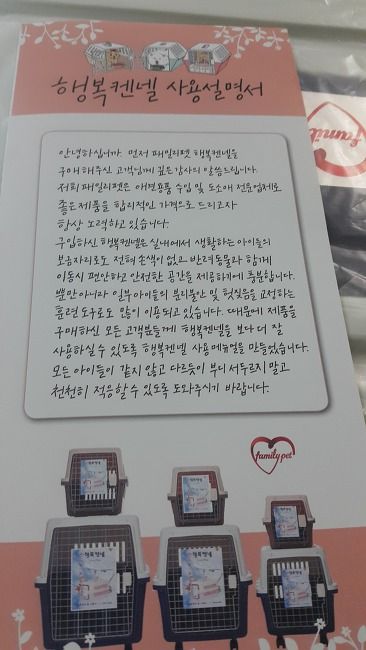 행복켄넬 사용설명서
안녕하십니까. 먼저 패밀리펫 행복켄넬을
구매해주신 고객님께 깊은 감사의 말씀드립니다.
저희 패밀리펫은 애견용품 수입 및 도소매 전문업체로
좋은제품을 합리적인 가격으로 드리고자
항상 노력하고 있습니다.
구입하신 행복켄넬은 실내에서 생활하는 아이들의
보금자리로도 전혀 손색이 없고 반려동물과 함께
이동시 편안하고 안전한 공간을 제공하기에 충분합니다.
뿐만 아니라 일부아이들의 분리불안 및 헛짖음을 교정하는
훈련 도구로도 많이 이용되고 있습니다. 때문에 제품을
구매하신 모든 고객분들께 행복켄넬을 보다 더 잘
사용하실 수 있도록 행복켄넬 사용메뉴얼을 만들었습니다.
모든 아이들이 같지 않고 다르듯이 부디 서두르지 말고
천천히 적응할 수 있도록 도와주시기 바랍니다.
family pet
행복켄넬
행복켄넬
행복켄넬
famil